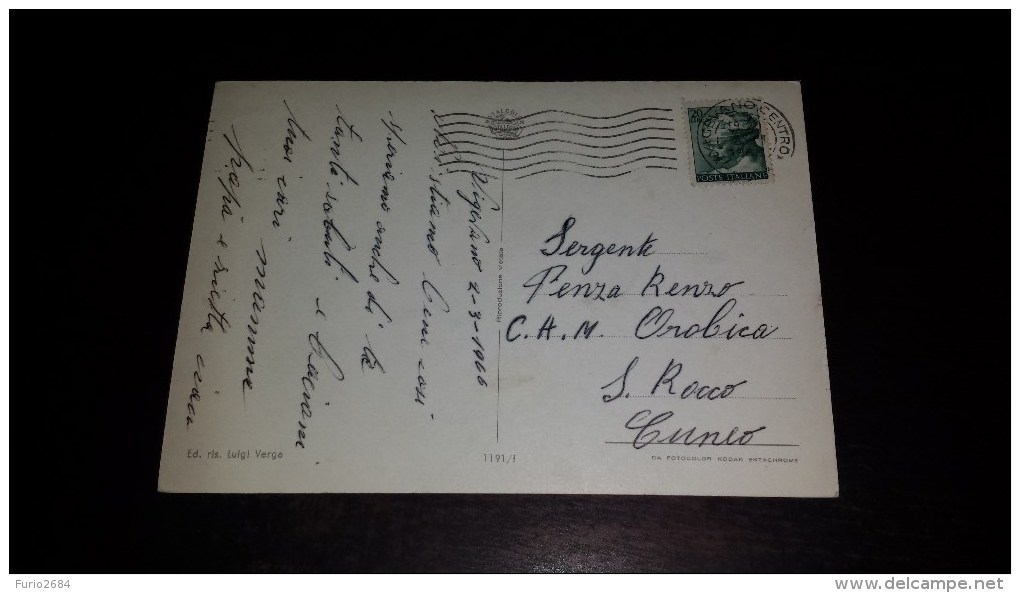 Vigevano 2-3-1966
stiamo bene così
speriamo anche di te
tanti saluti e baciani
tuoi cari mamma
papà e ciau
Sergente
Penza Renzo
C.A.M. Orobica
S. Rocco
Cuneo
20
POSTE ITALIANE
CENTRO
Riproduzione vietata
Ed. ris. Luigi Verga
1191/I
DA FOTOCOLOR KODAK EKTACHROME
Furio2684
www.delcampe.net